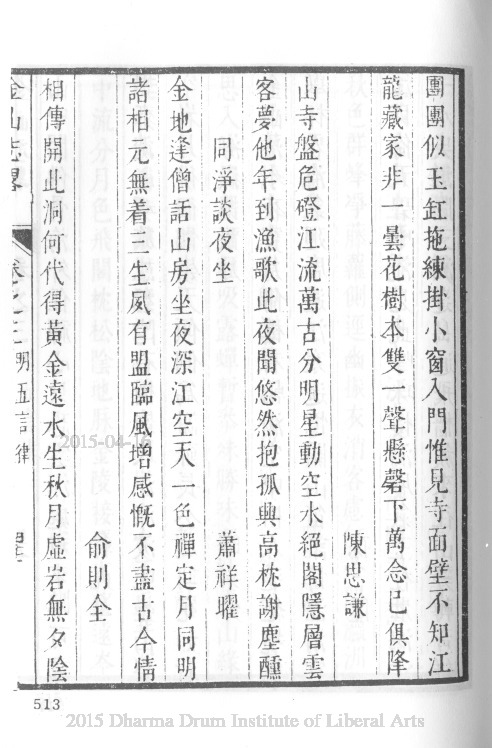 團團似玉缸拖練掛小窗入門惟見寺面壁不知江
龍藏家非一曇花樹本雙一聲懸磬下萬念已俱降
陳思謙
山寺盤危磴江流萬古分明星動空水絕閣隱層雲
客夢他年到漁歌此夜聞悠然抱孤興高枕謝塵醺
同淨談夜坐
蕭祥曜
金地逢僧話山房坐夜深江空天一色禪定月同明
諸相元無着三生夙有盟臨風增感慨不盡古今情
俞則全
相傳開此洞何代得黃金遠水生秋月虛岩無夕陰
金山志畧
卷之三
明五言律
513
2015-04-16
2015 Dharma Drum Institute of Liberal Arts